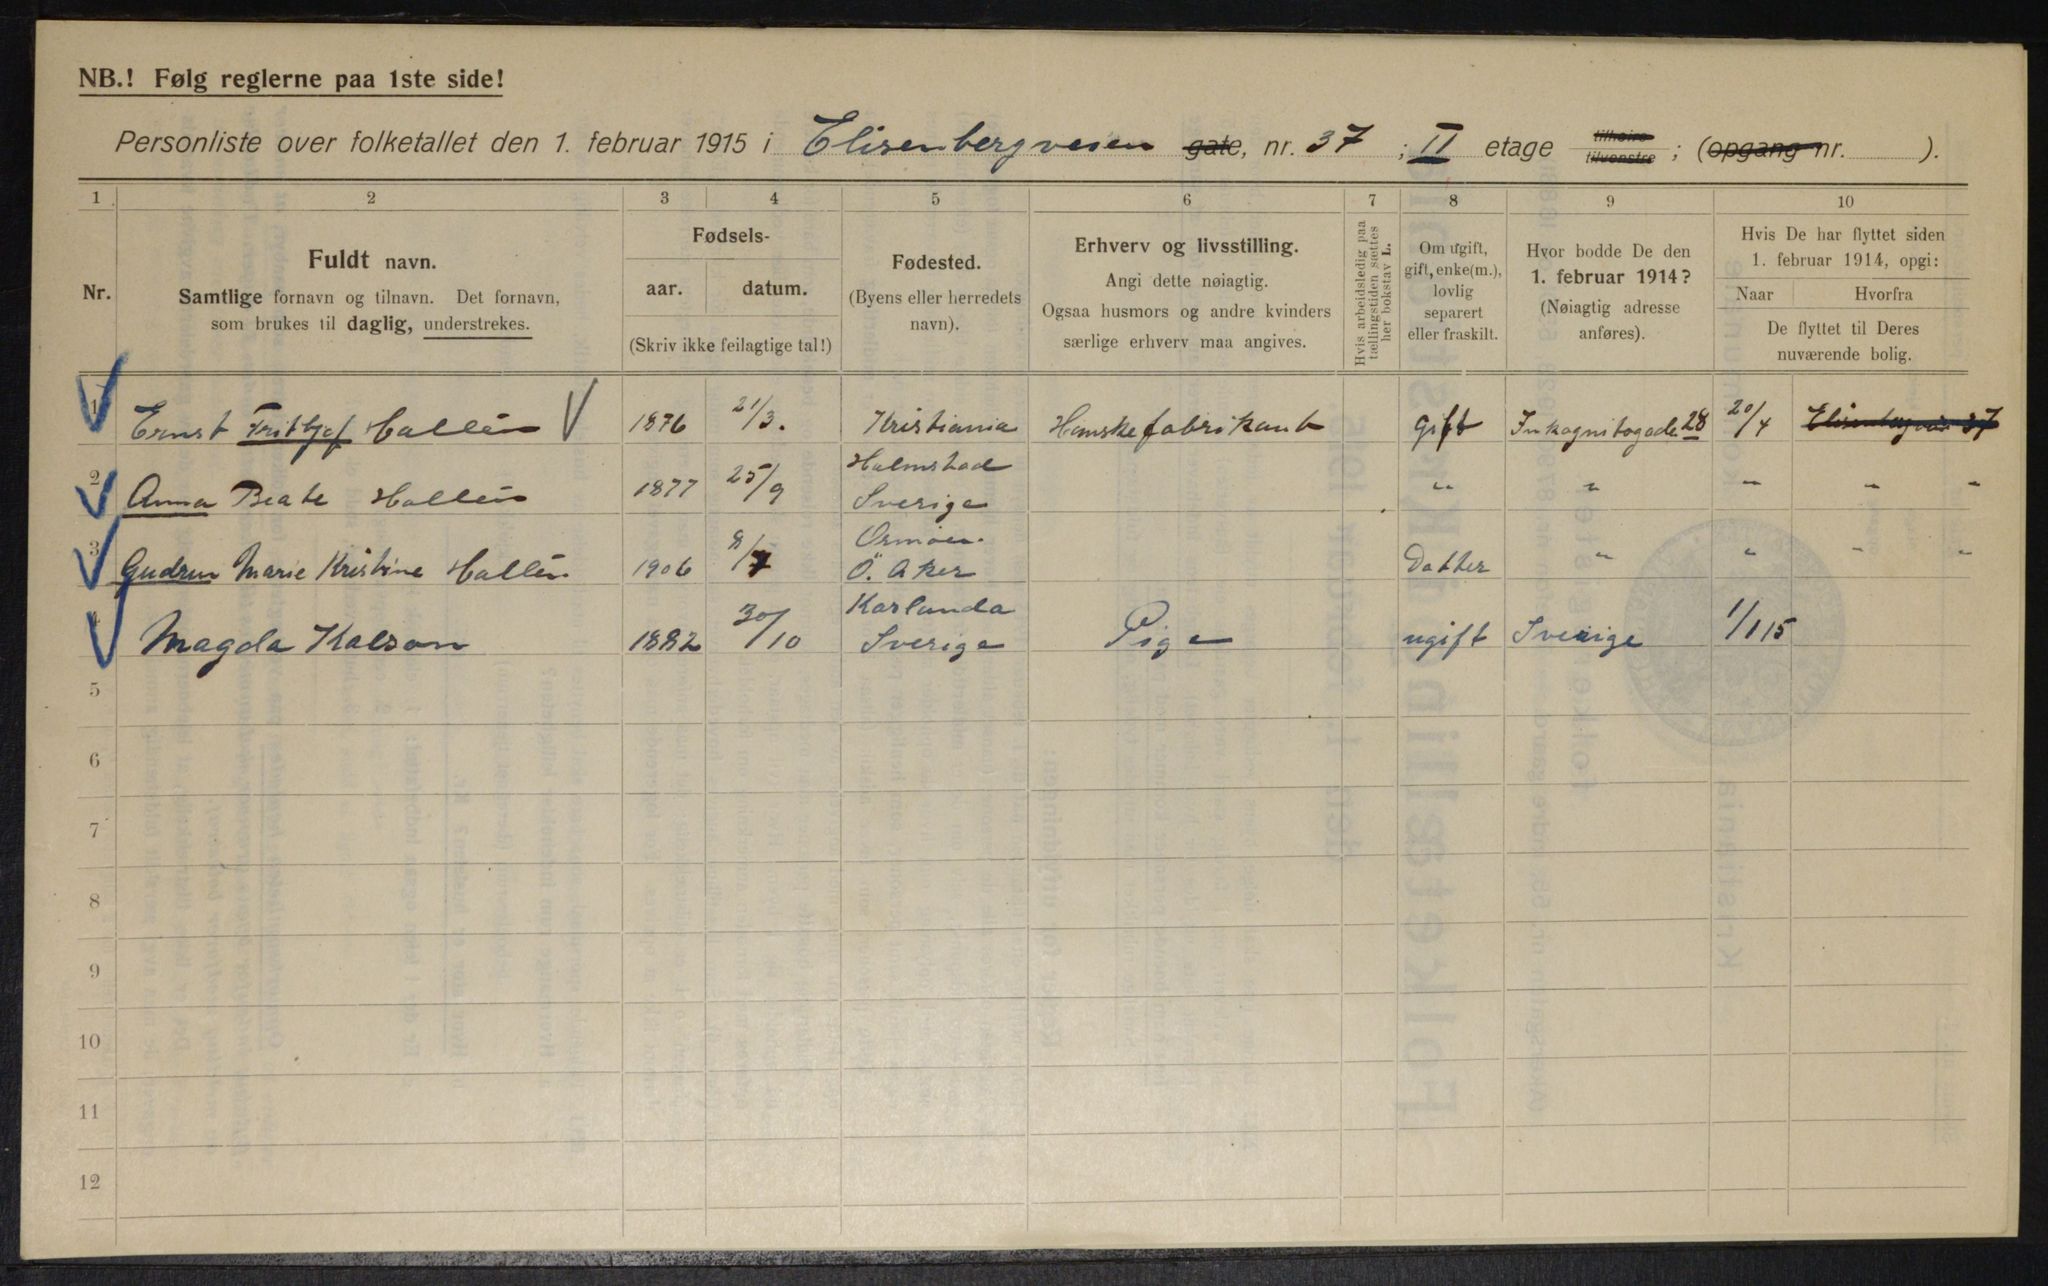 NB.! Følg reglerne paa 1ste side!
Personliste over folketallet den 1. februar 1915 i Elisenbergveien gate, nr. 37 ; II etage tilhøire tilvenstre ; (opgang nr. ).
1 2 3 4 5 6 7 8 9 10
Nr.
Fuldt navn.
Samtlige fornavn og tilnavn. Det fornavn,
som brukes til daglig, understrekes.
Fødsels-
aar. datum.
(Skriv ikke feilagtige tal!)
Fødested.
(Byens eller herredets
navn).
Erhverv og livsstilling.
Angi dette nøiagtig.
Ogsaa husmors og andre kvinders
særlige erhverv maa angives.
Hvis arbeidsledig paa
tællingstiden sættes
her bokstav L.
Om ugift,
gift, enke(m.),
lovlig
separert
eller fraskilt.
Hvor bodde De den
1. februar 1914?
(Nøiagtig adresse
anføres).
Hvis De har flyttet siden
1. februar 1914, opgi:
Naar Hvorfra
De flyttet til Deres
nuværende bolig.
1 Ernst Frithjof Hallén 1876 21/3. Kristiania Hanskefabrikant Gift Inkognitogade 28 20/4 Elisenbergvei 37
2 Anna Beate Hallén 1877 25/9 Halmstad Sverige " " " " "
3 Gudrun Marie Kristine Hallén 1906 8/7 Ormøen. Ö. Aker Datter " " " "
4 Magda Kalson 1882 30/10 Karlanda Sverige Pige ugift Sverige 1/1 15
5
6
7
8
9
10
11
12